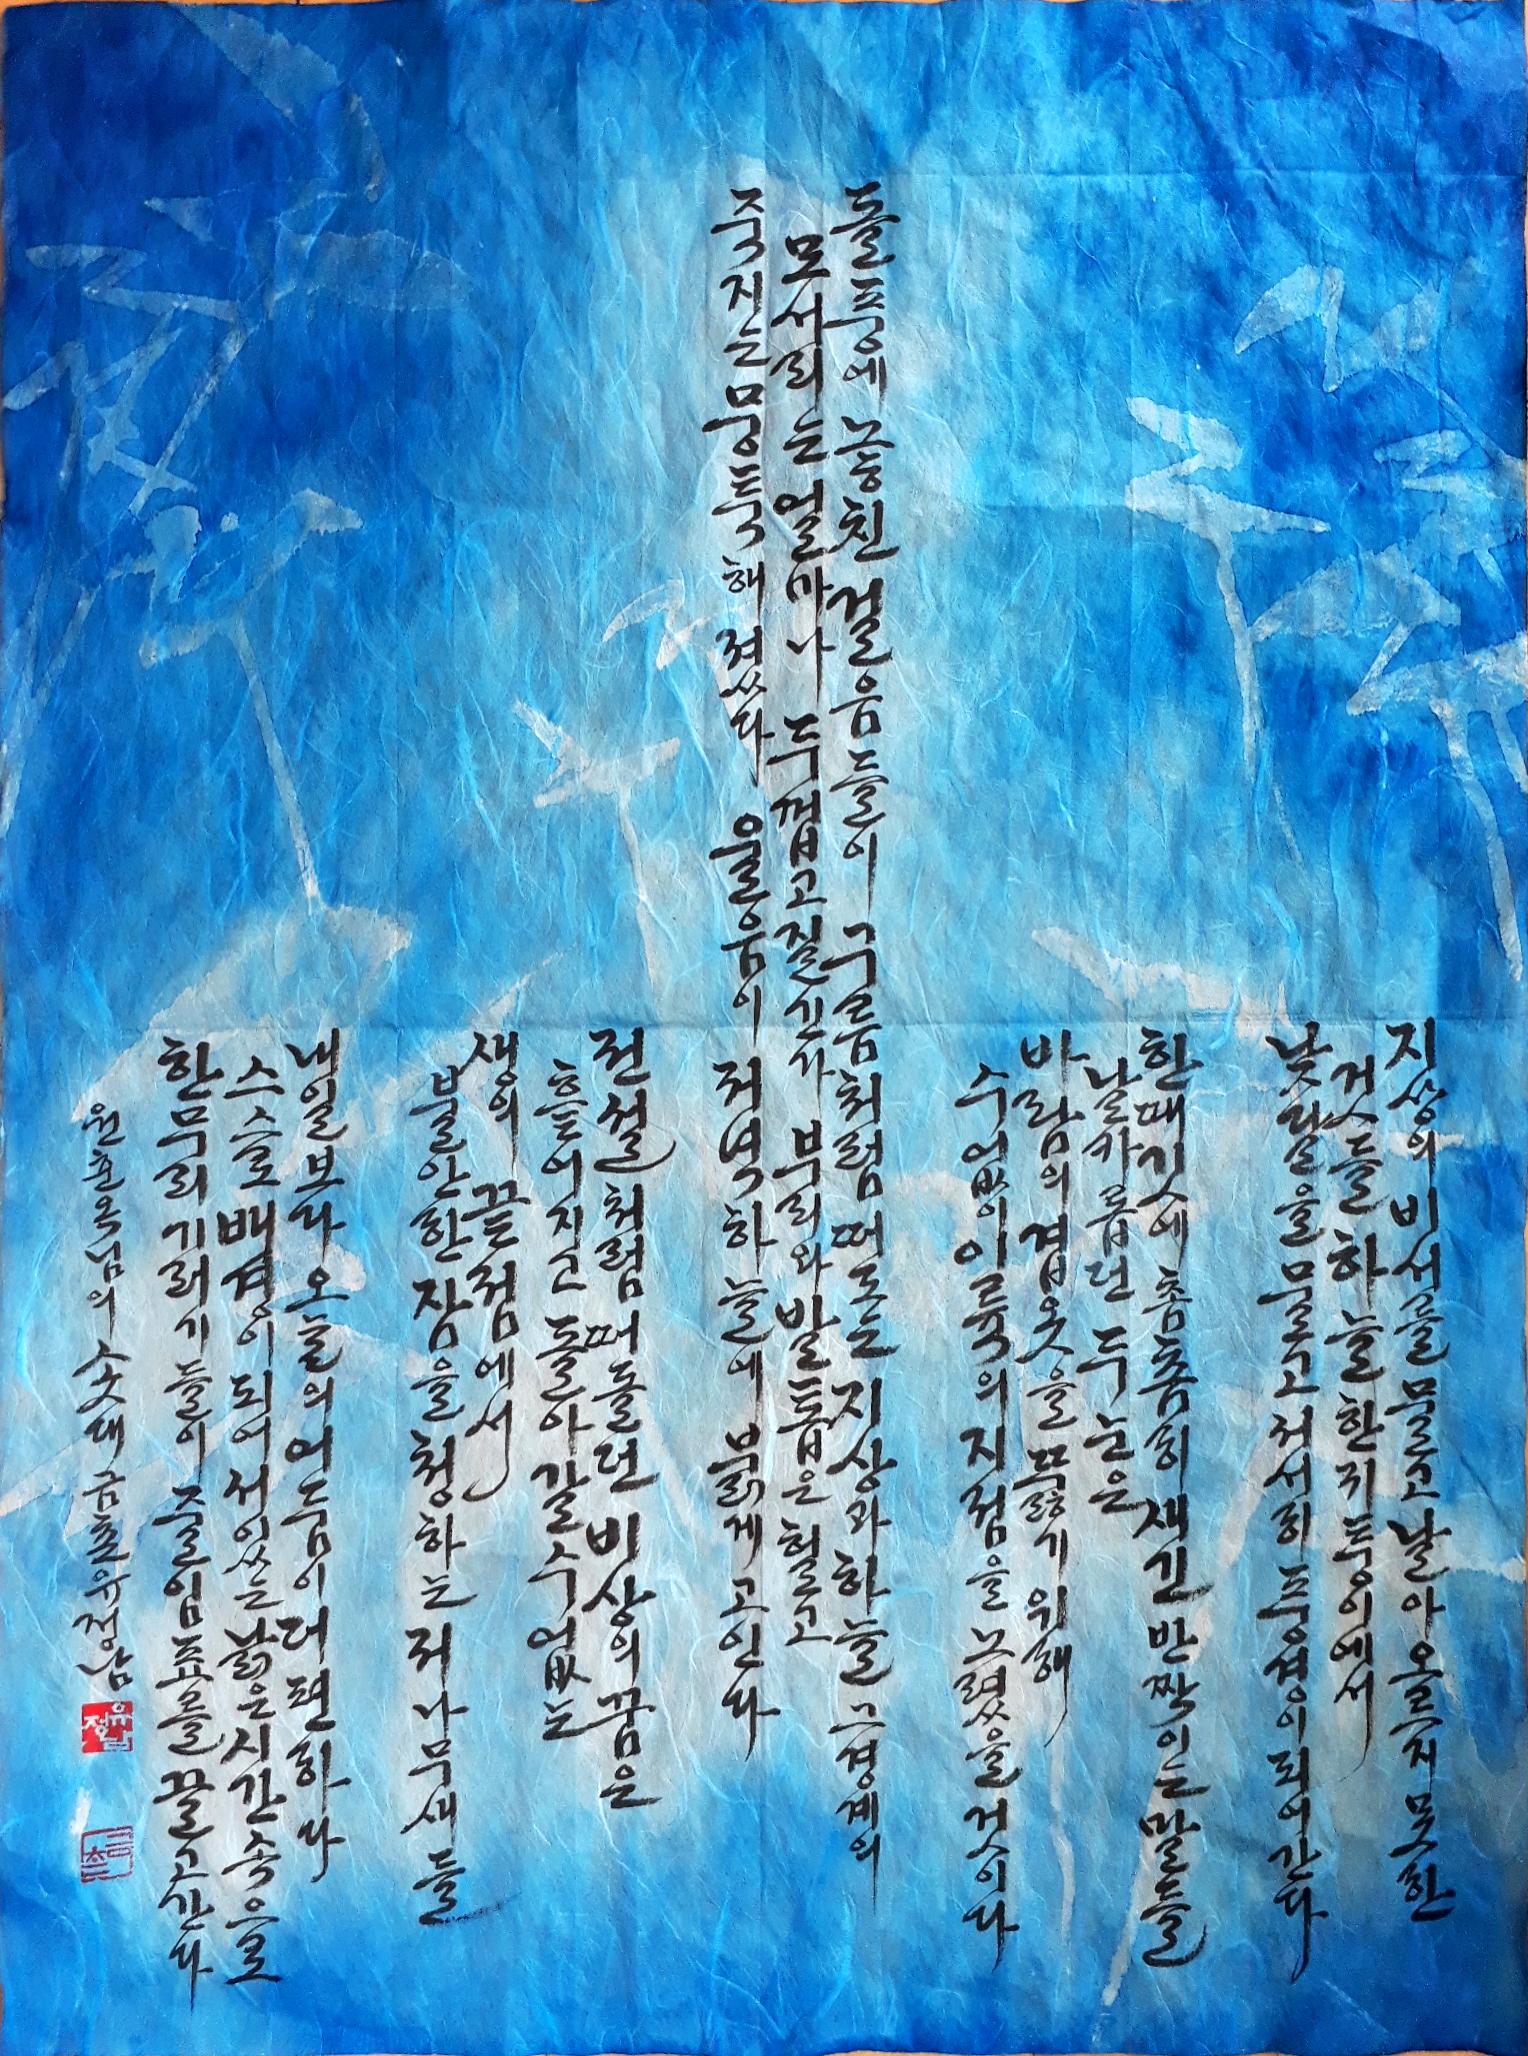 지상의 비서를 물고 날아오르지 못한
것들 하늘 한 귀퉁이에서
낮달을 물고 서서히 풍경이 되어간다
한때 깃에 촘촘히 새긴 반짝이는 말들
날카롭던 두 눈은
바람의 겹옷을 뚫기 위해
수없이 이륙의 지점을 노렸을 것이다
돌풍에 놓친 걸음들이 구름처럼 떠도는 지상과 하늘 그 경계의
모서리는 얼마나 두껍고 질긴가 부리와 발톱은 헐고
죽지는 뭉툭해졌다 울음이 저녁 하늘에 붉게 고인다
전설처럼 떠돌던 비상의 꿈은
흩어지고 돌아갈 수 없는
생의 끝점에서
불안한 잠을 청하는 저 나무새들
내일보다 오늘의 어둠이 더 편하다
스스로 배경이 되어 서있는 낡은 시간 속으로
한 무리 기러기들이 줄임표를 끌고 간다
원춘옥님의 솟대 금촌 유정남
유정남
금촌